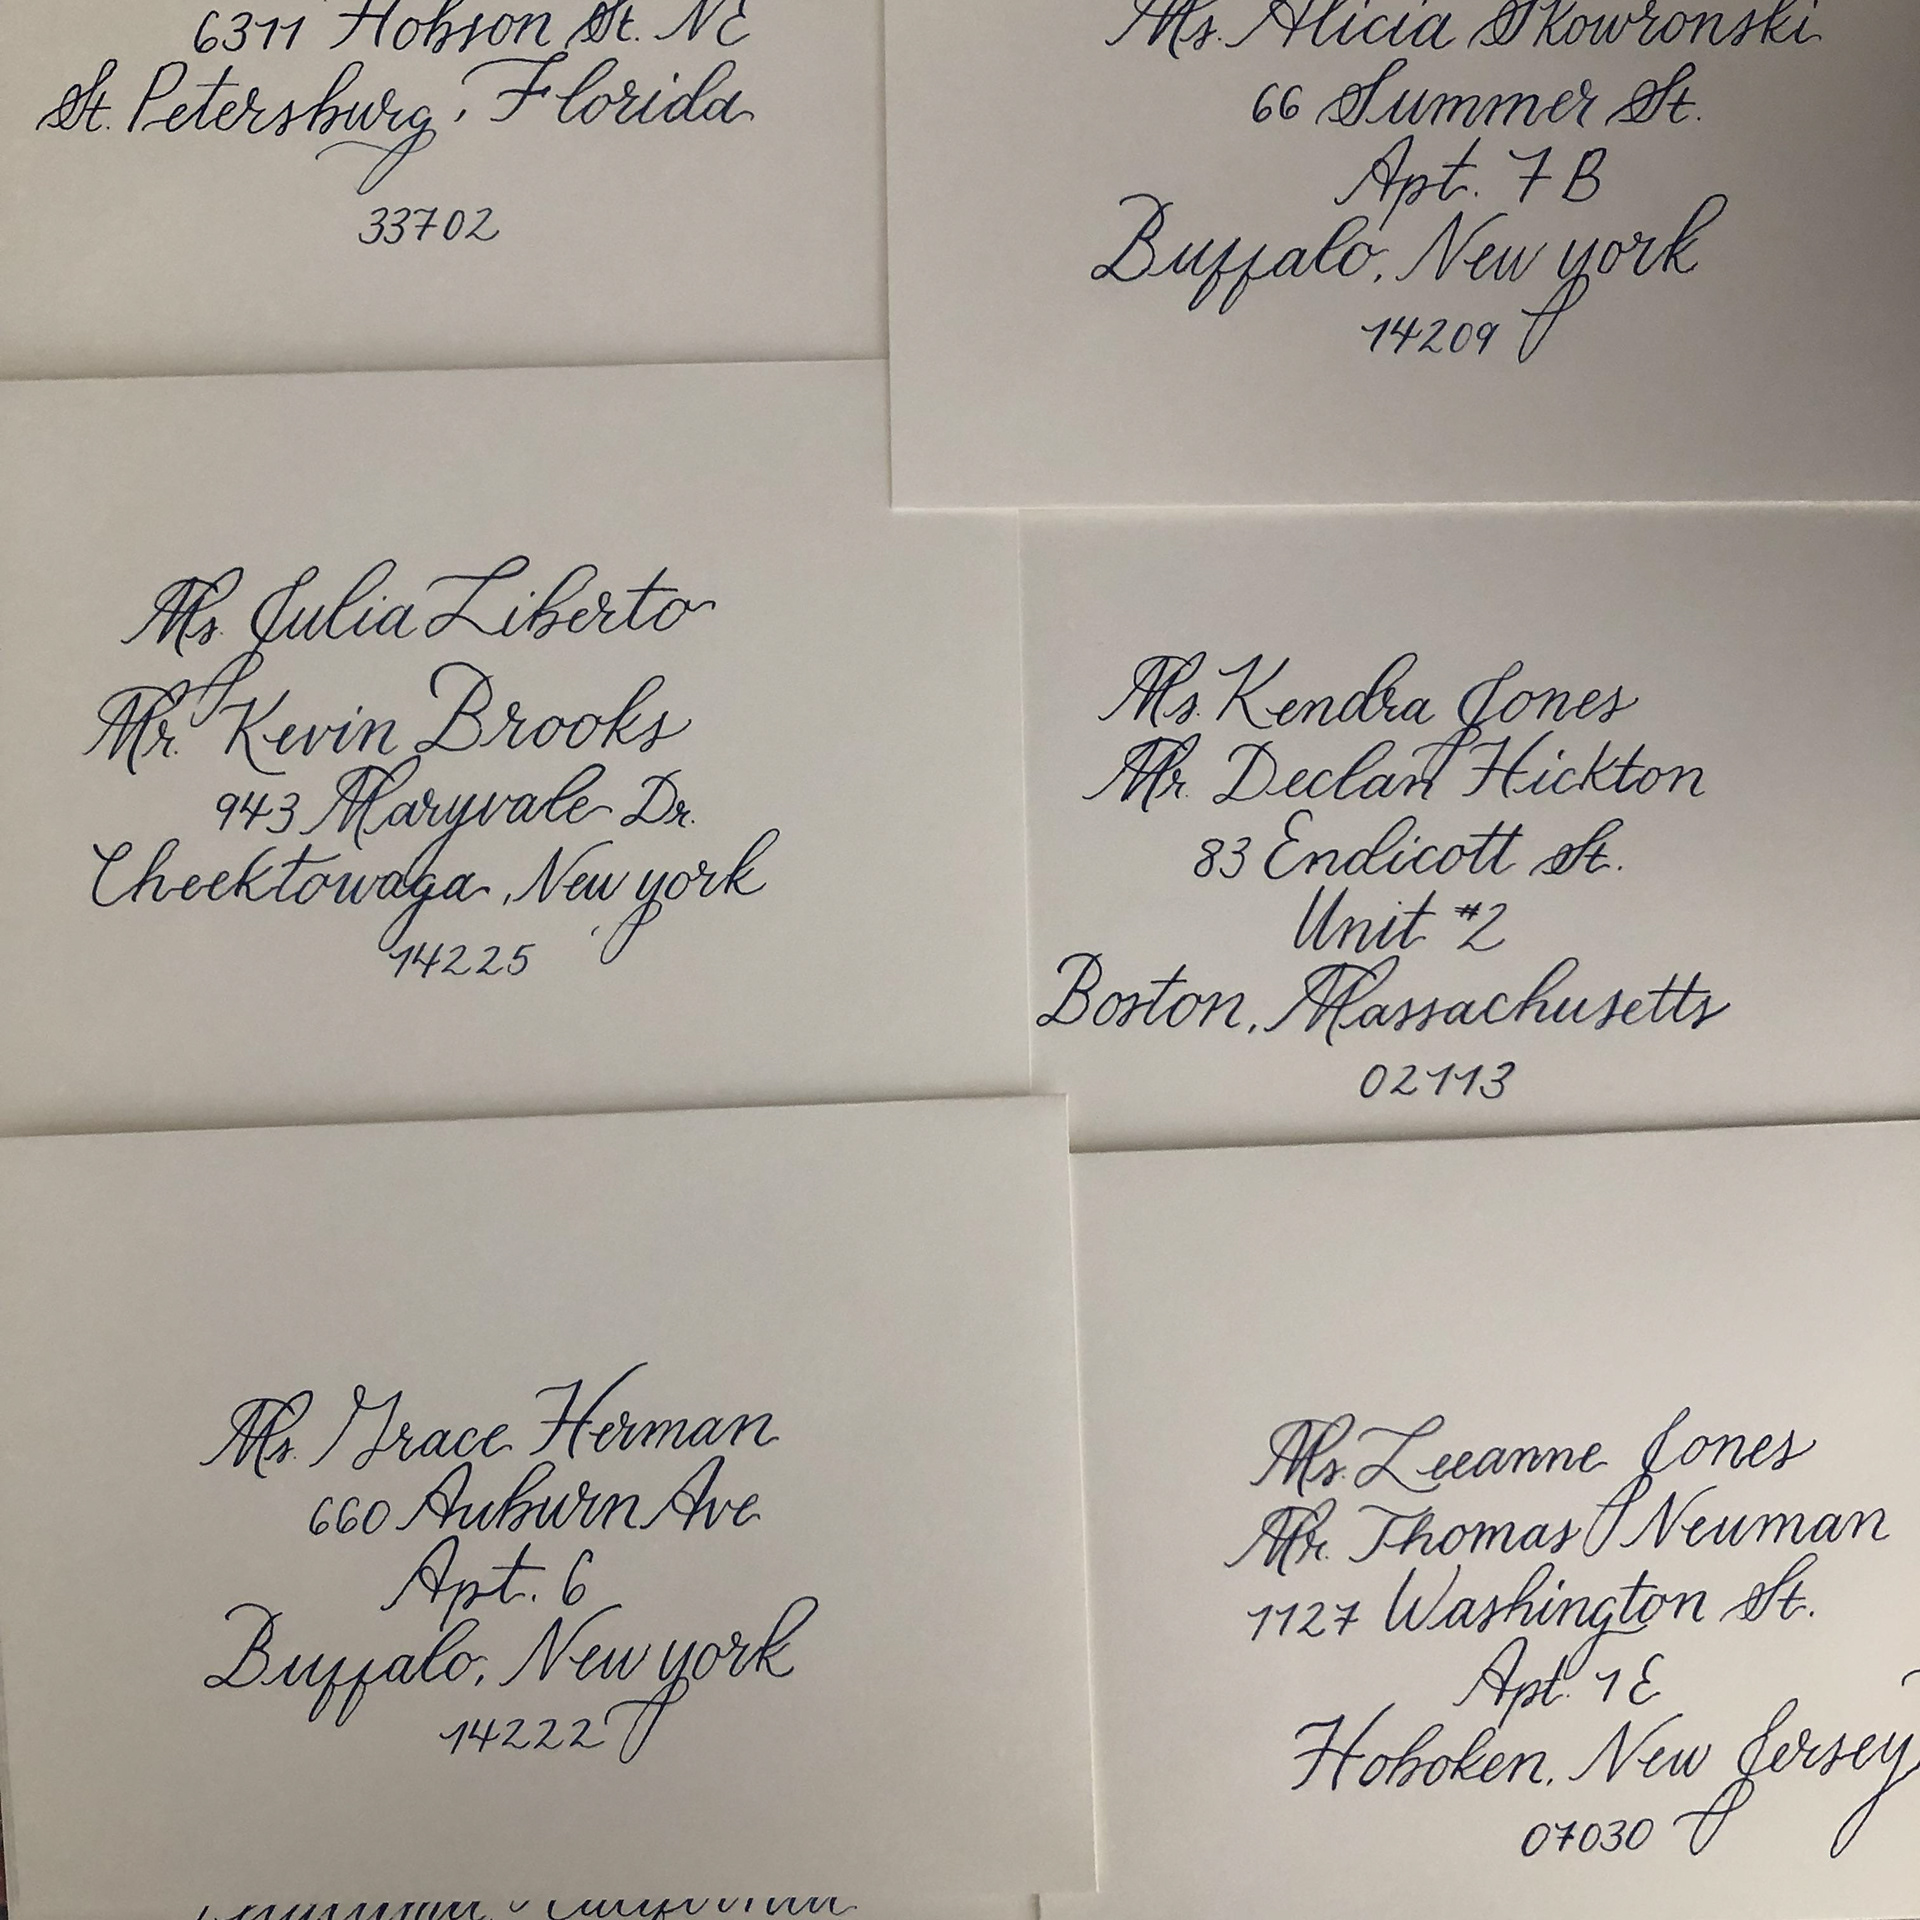 6311 Hobson St. NE
St. Petersburg, Florida
33702
Ms. Alicia Skowronski
66 Summer St.
Apt. 7B
Buffalo, New York
14209
Ms. Julia Liberto
Mr. Kevin Brooks
943 Maryvale Dr.
Cheektowaga, New York
14225
Ms. Kendra Jones
Mr. Declan Hickton
83 Endicott St.
Unit #2
Boston, Massachusetts
02113
Ms. Grace Herman
660 Auburn Ave
Apt. 6
Buffalo, New York
14222
Ms. Leeanne Jones
Mr. Thomas Neuman
1127 Washington St.
Apt. 1E
Hoboken, New Jersey
07030